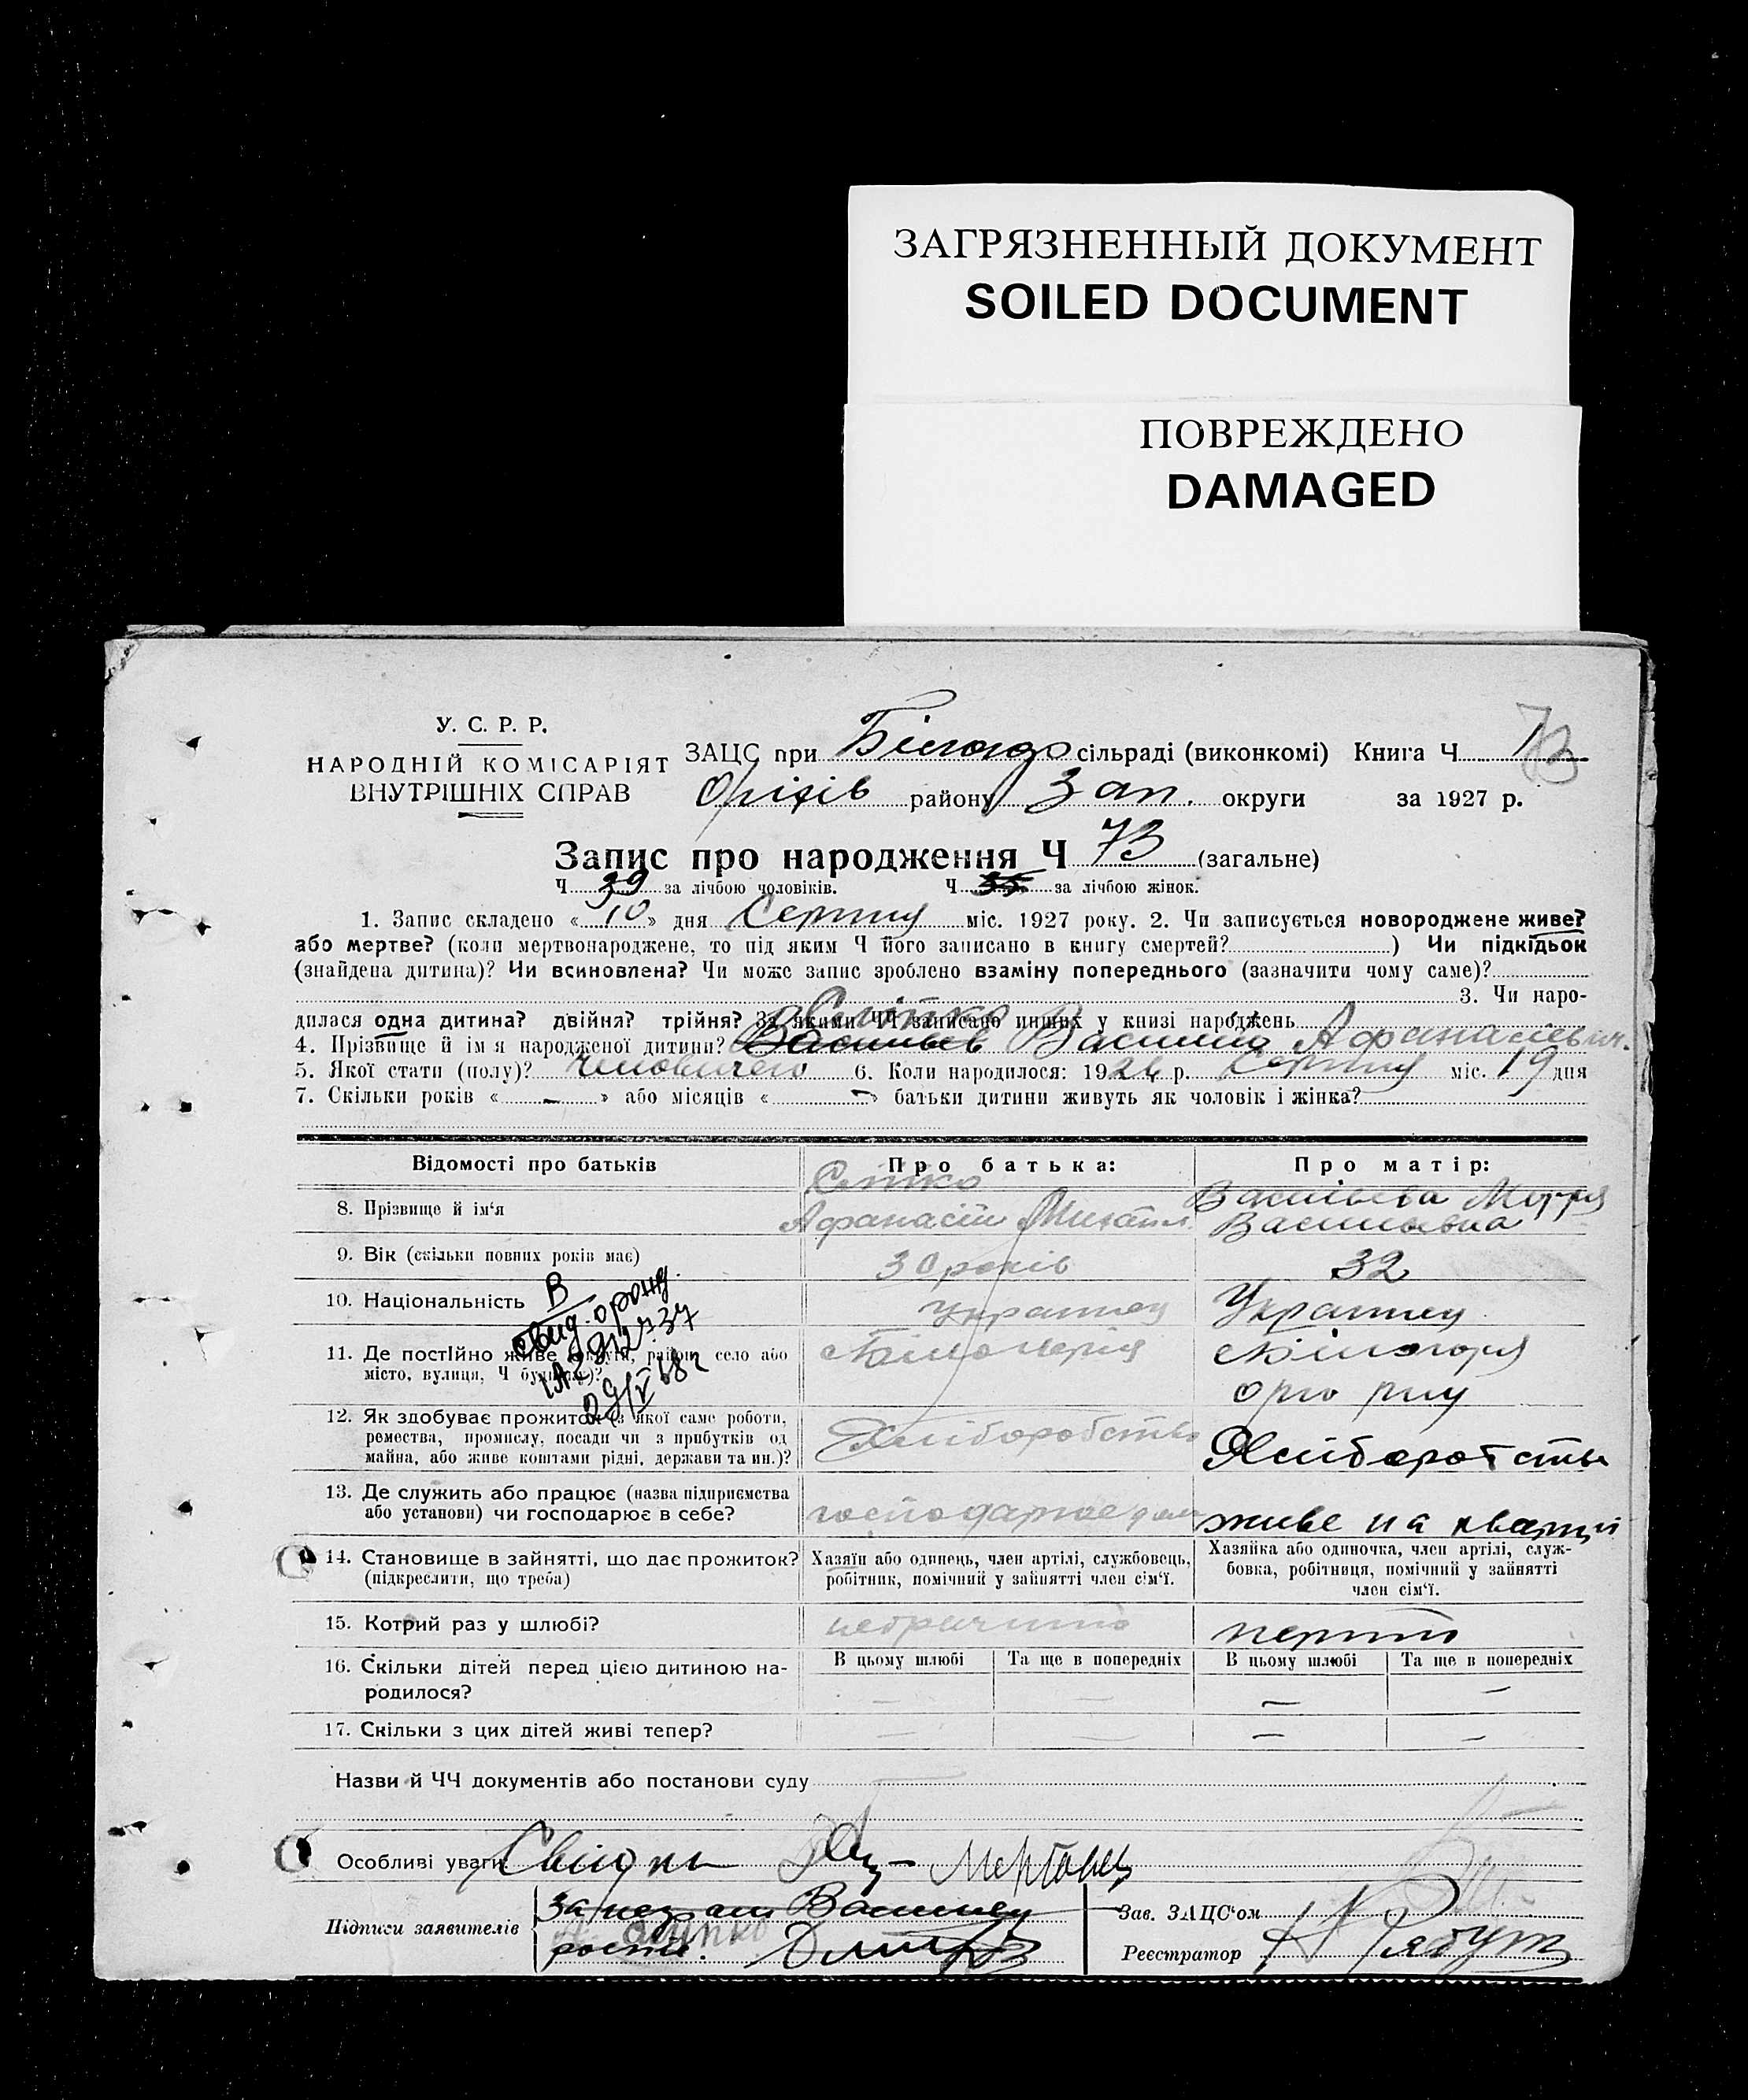 ЗАГРЯЗНЕННЫЙ ДОКУМЕНТ
SOILED DOCUMENT
ПОВРЕЖДЕНО
DAMAGED
У. С. Р. Р.
НАРОДНІЙ КОМІСАРІЯТ
ВНУТРІШНІХ СПРАВ
73
ЗАЦС при сільраді (виконкомі) Книга Ч 1
Оріхів району Зап. округи за 1927 р.
Запис про народження Ч 73 (загальне)
Ч 39 за лічбою чоловіків. Ч за лічбою жінок.
1. Запис складено «10» дня Серпня міс. 1927 року. 2. Чи записується новороджене живе?
або мертве? (коли мертвонароджене, то під яким Ч його записано в книгу смертей?) Чи підкідьок
(знайдена дитина)? Чи всиновлена? Чи може запис зроблено взаміну попереднього (зазначити чому саме)?
3. Чи наро-
дилася одна дитина? двійня? трійня? За якими ЧЧ записано инших у книзі народжень
4. Прізвище й ім'я народженої дитини? Васильев Василий Афанасієвич.
5. Якої стати (полу)? человичего 6. Коли народилося: 1926 р. Серпня міс. 19 дня
7. Скільки років «-» або місяців «-» батьки дитини живуть як чоловік і жінка?
Відомості про батьків Про батька: Про матір:
8. Прізвище й ім'я Афанасій Михайл. Васильева Марія Васильевна
9. Вік (скільки повних років має) 30 років 32
10. Національність Украинец Украинец
В
свид. о рожд.
29/V 68 г
11. Де постійно живе (округа, район, село або
місто, вулиця, Ч будинку)? Білогорія Білогоря
12. Як здобуває прожиток (з якої саме роботи,
ремества, промислу, посади чи з прибутків од
майна, або живе коштами рідні, держави та ин.)? Хліборобство Хліборобство
13. Де служить або працює (назва підприємства
або установи) чи господарює в себе? живе на кварті
14. Становище в зайнятті, що дає прожиток?
(підкреслити, що треба)
Хазяїн або одинець, член артілі, службовець,
робітник, помічний у зайнятті член сім'ї.
Хазяйка або одиночка, член артілі, служ-
бовка, робітниця, помічний у зайнятті
член сім'ї.
15. Котрий раз у шлюбі? перший
16. Скільки дітей перед цією дитиною на-
родилося?
В цьому шлюбі Та ще в попередніх В цьому шлюбі Та ще в попередніх
— — — —
17. Скільки з цих дітей живі тепер? — — — —
Назви й ЧЧ документів або постанови суду
Особливі уваги: Свідки
Підписи заявителів
Зав. ЗАЦС'ом
Реєстратор